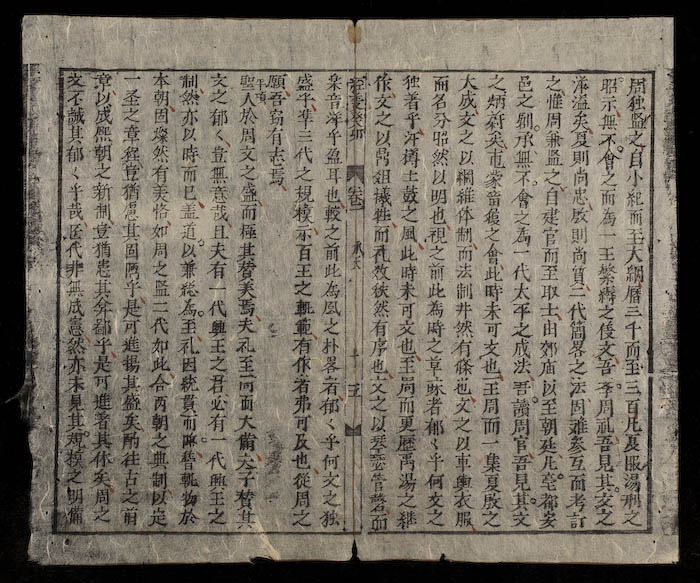 周独監之自小紀而至大綱曆三千而至三百凡夏服湯刑之
昭示無不會之而為一王繁縟之文吾李周礼吾見其文之
洋溢矣夏則尚忠殷則尚質二代簡畧之法固难参互而考訂
之惟周兼監之自建官而至取士由郊庙以至朝廷凡亳都安
邑之制承無不會之為一代太平之成法吾讀周官吾見其文
之炳蔚矣帝蒙音之會此時未可文也王周而一集夏殷之
大成文之以綱維体制而法制井然有條也文之以車輿衣服
而名分昭然以明也視之前此為時之草昧者郁〻乎何文之
独著乎汙搏土鼓之風此時未可文也至周而更歷禹湯之継
作文之以鼎俎犧牲而礼教秩然有序也文之以琴瑟管磬而
卷
樂音洋乎盈耳也較之前此為風之朴畧者郁〻乎何文之独
盛乎準三代之規模示百王之軌範有作者弗可及也從周之
願吾窃有志焉
聖人於周文之盛而極其賛美焉夫礼至周而大備夫子賛其
文之郁〻豈無意哉且夫有一代興王之君必有一代興王之
制然亦以時而已盖道以兼総為至礼因統貫而隆昔軌物於
本朝固燦然有美如周之監二代如此合两朝之典制以定
一圣之章程豈猶患其固陋乎是可進揚其盛矣酌往古之前
章以成熙朝之新制豈猶患其弇鄙乎是可進者其休矣周之
文不誠其郁〻乎哉代非無成憲然亦未見其規模之明備